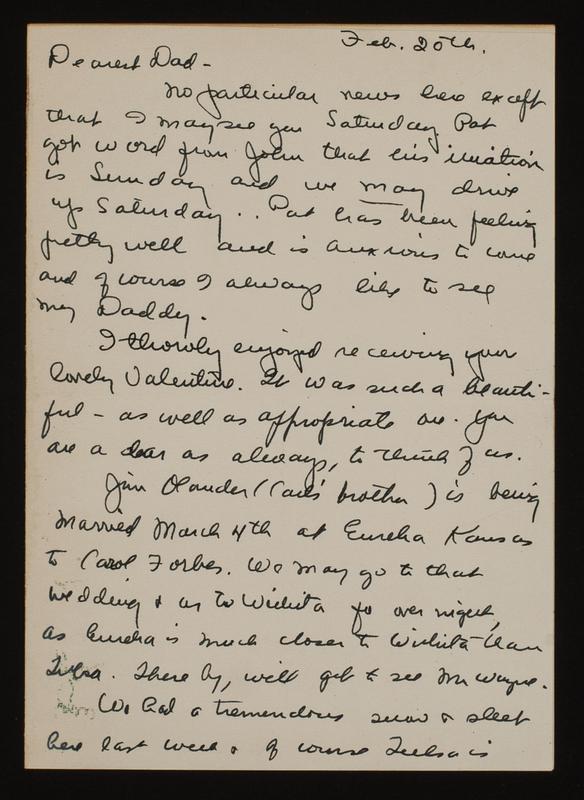 Feb. 20th.
Dearest Dad -
No particular news here except
that I may see you Saturday Pat
got word from John that his iniation
is Sunday and we may drive
up Saturday .. Pat has been feeling
pretty well and is anxious to come
and of course I always like to see
my Daddy.
I thorouly enjoyed receiving your
lovely Valentine. It was such a beauti-
ful - as well as appropriate one. You
are a dear as always, to think of us.
Jim Olander (Carl's brother) is being
married March 4th at Eureka Kansas
to Carol Forbes. We may go to that
wedding & on to Wichita for over night,
as Eureka is much closer to Wichita than
Tulsa. There by, we'll get to see Mr Wayne.
We had a tremendous snow & sleet
here last week & of course Tulsa is